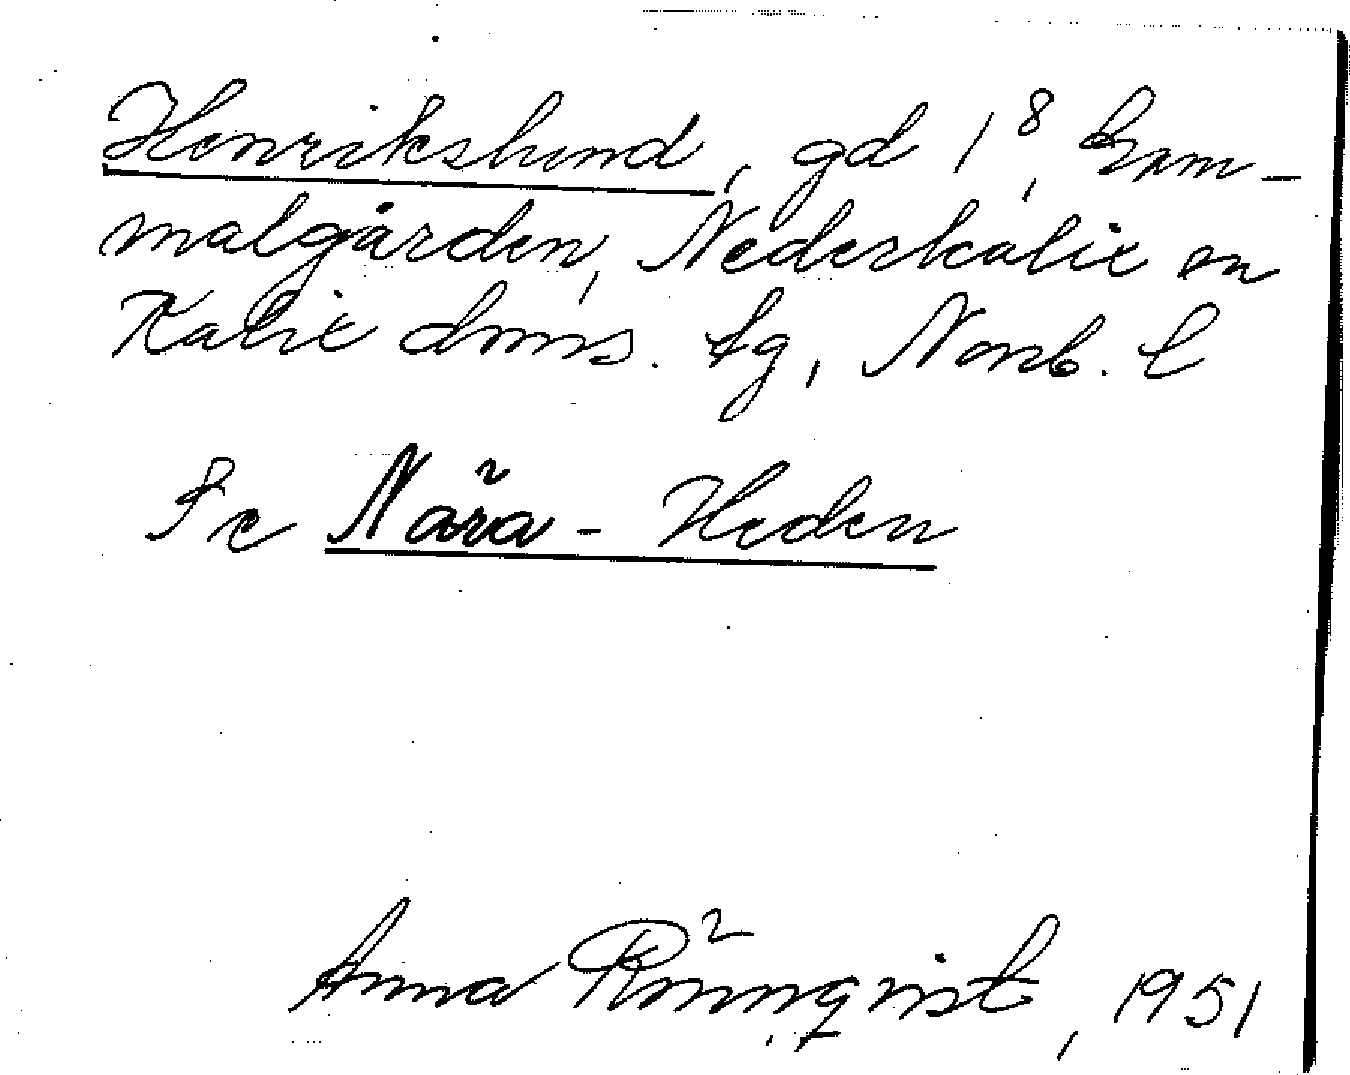 Henrikslund, gd 1⁸, Gam-
malgården, Nederkalix sn
Kalix doms. tg, Norrb. l
Se Nära-Heden
Anna Rönnqvist, 1951